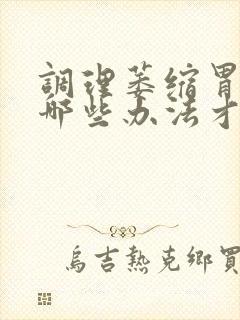 調理萎缩胃
哪些办法才
烏吉熱克鄉買